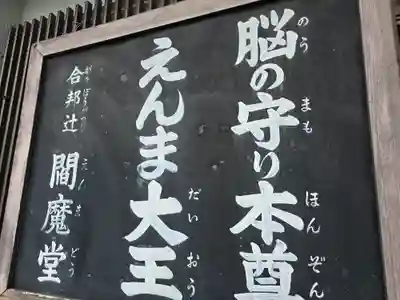 脳の守り本尊
のう まも ほん ぞん
えんま大王
だい おう
合邦辻 閻魔堂
がっぽうがつじ えんま どう